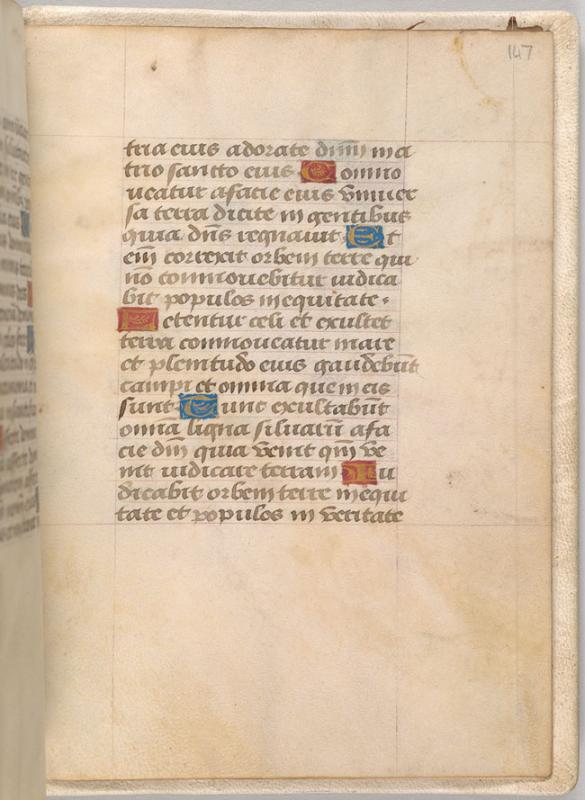 147
tria eius adorate dnm in a
trio sancto eius Commo
ueatur a facie eius vniuer
sa terra dicite in gentibus
quia dns regnauit Et
eni correxit orbem terre qui
no commouebitur iudica
bit populos in equitate.
Letentur celi et exultet
terra commoueatur mare
et plenitudo eius gaudebut
campi et omnia que in eis
sunt Tunc exultabut
omnia ligna siluaru a fa
cie dni quia venit qm ve
nit iudicare terram Iu
dicabit orbem terre in equi
tate et populos in veritate